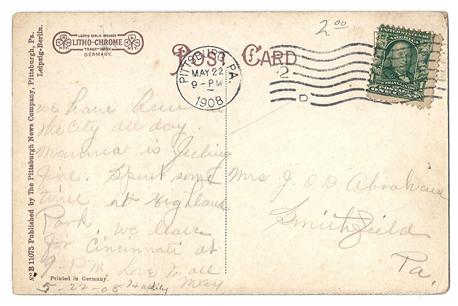 2.00
LEIPZIG BERLIN DRESDEN
LITHO-CHROME
TRADE MARK
GERMANY.
POST CARD
PITTSBURG, PA.
MAY 22
9-PM
1908
2
D
B 11075 Published by The Pittsburgh News Company, Pittsburgh, Pa.
Leipzig-Berlin.
We have been in
the City all day.
Mamma is feeling
fine. Spent some
time at Highland
Park. We leave
for Cincinnati at
9 P.M. Love to all
5-22-08 May
Mrs J. O. D. Abraham
Smithfield
Pa.
Printed in Germany.